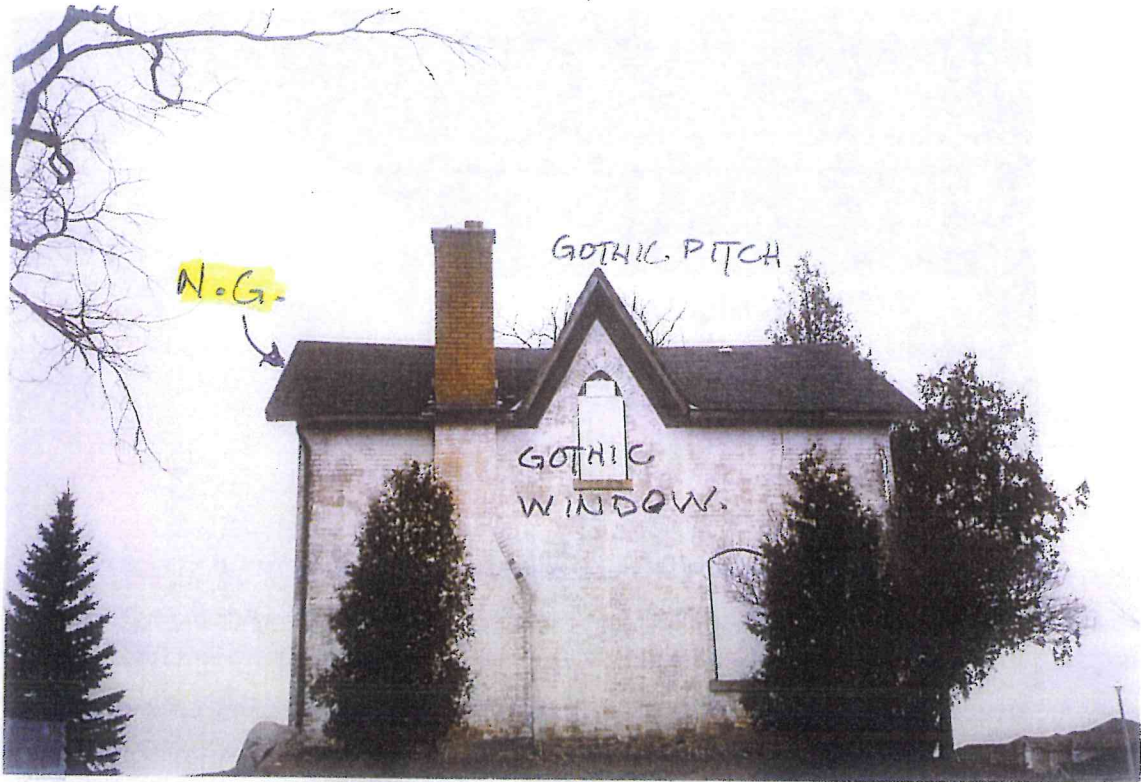 GOTHIC PITCH
N.G.
GOTHIC
WINDOW.